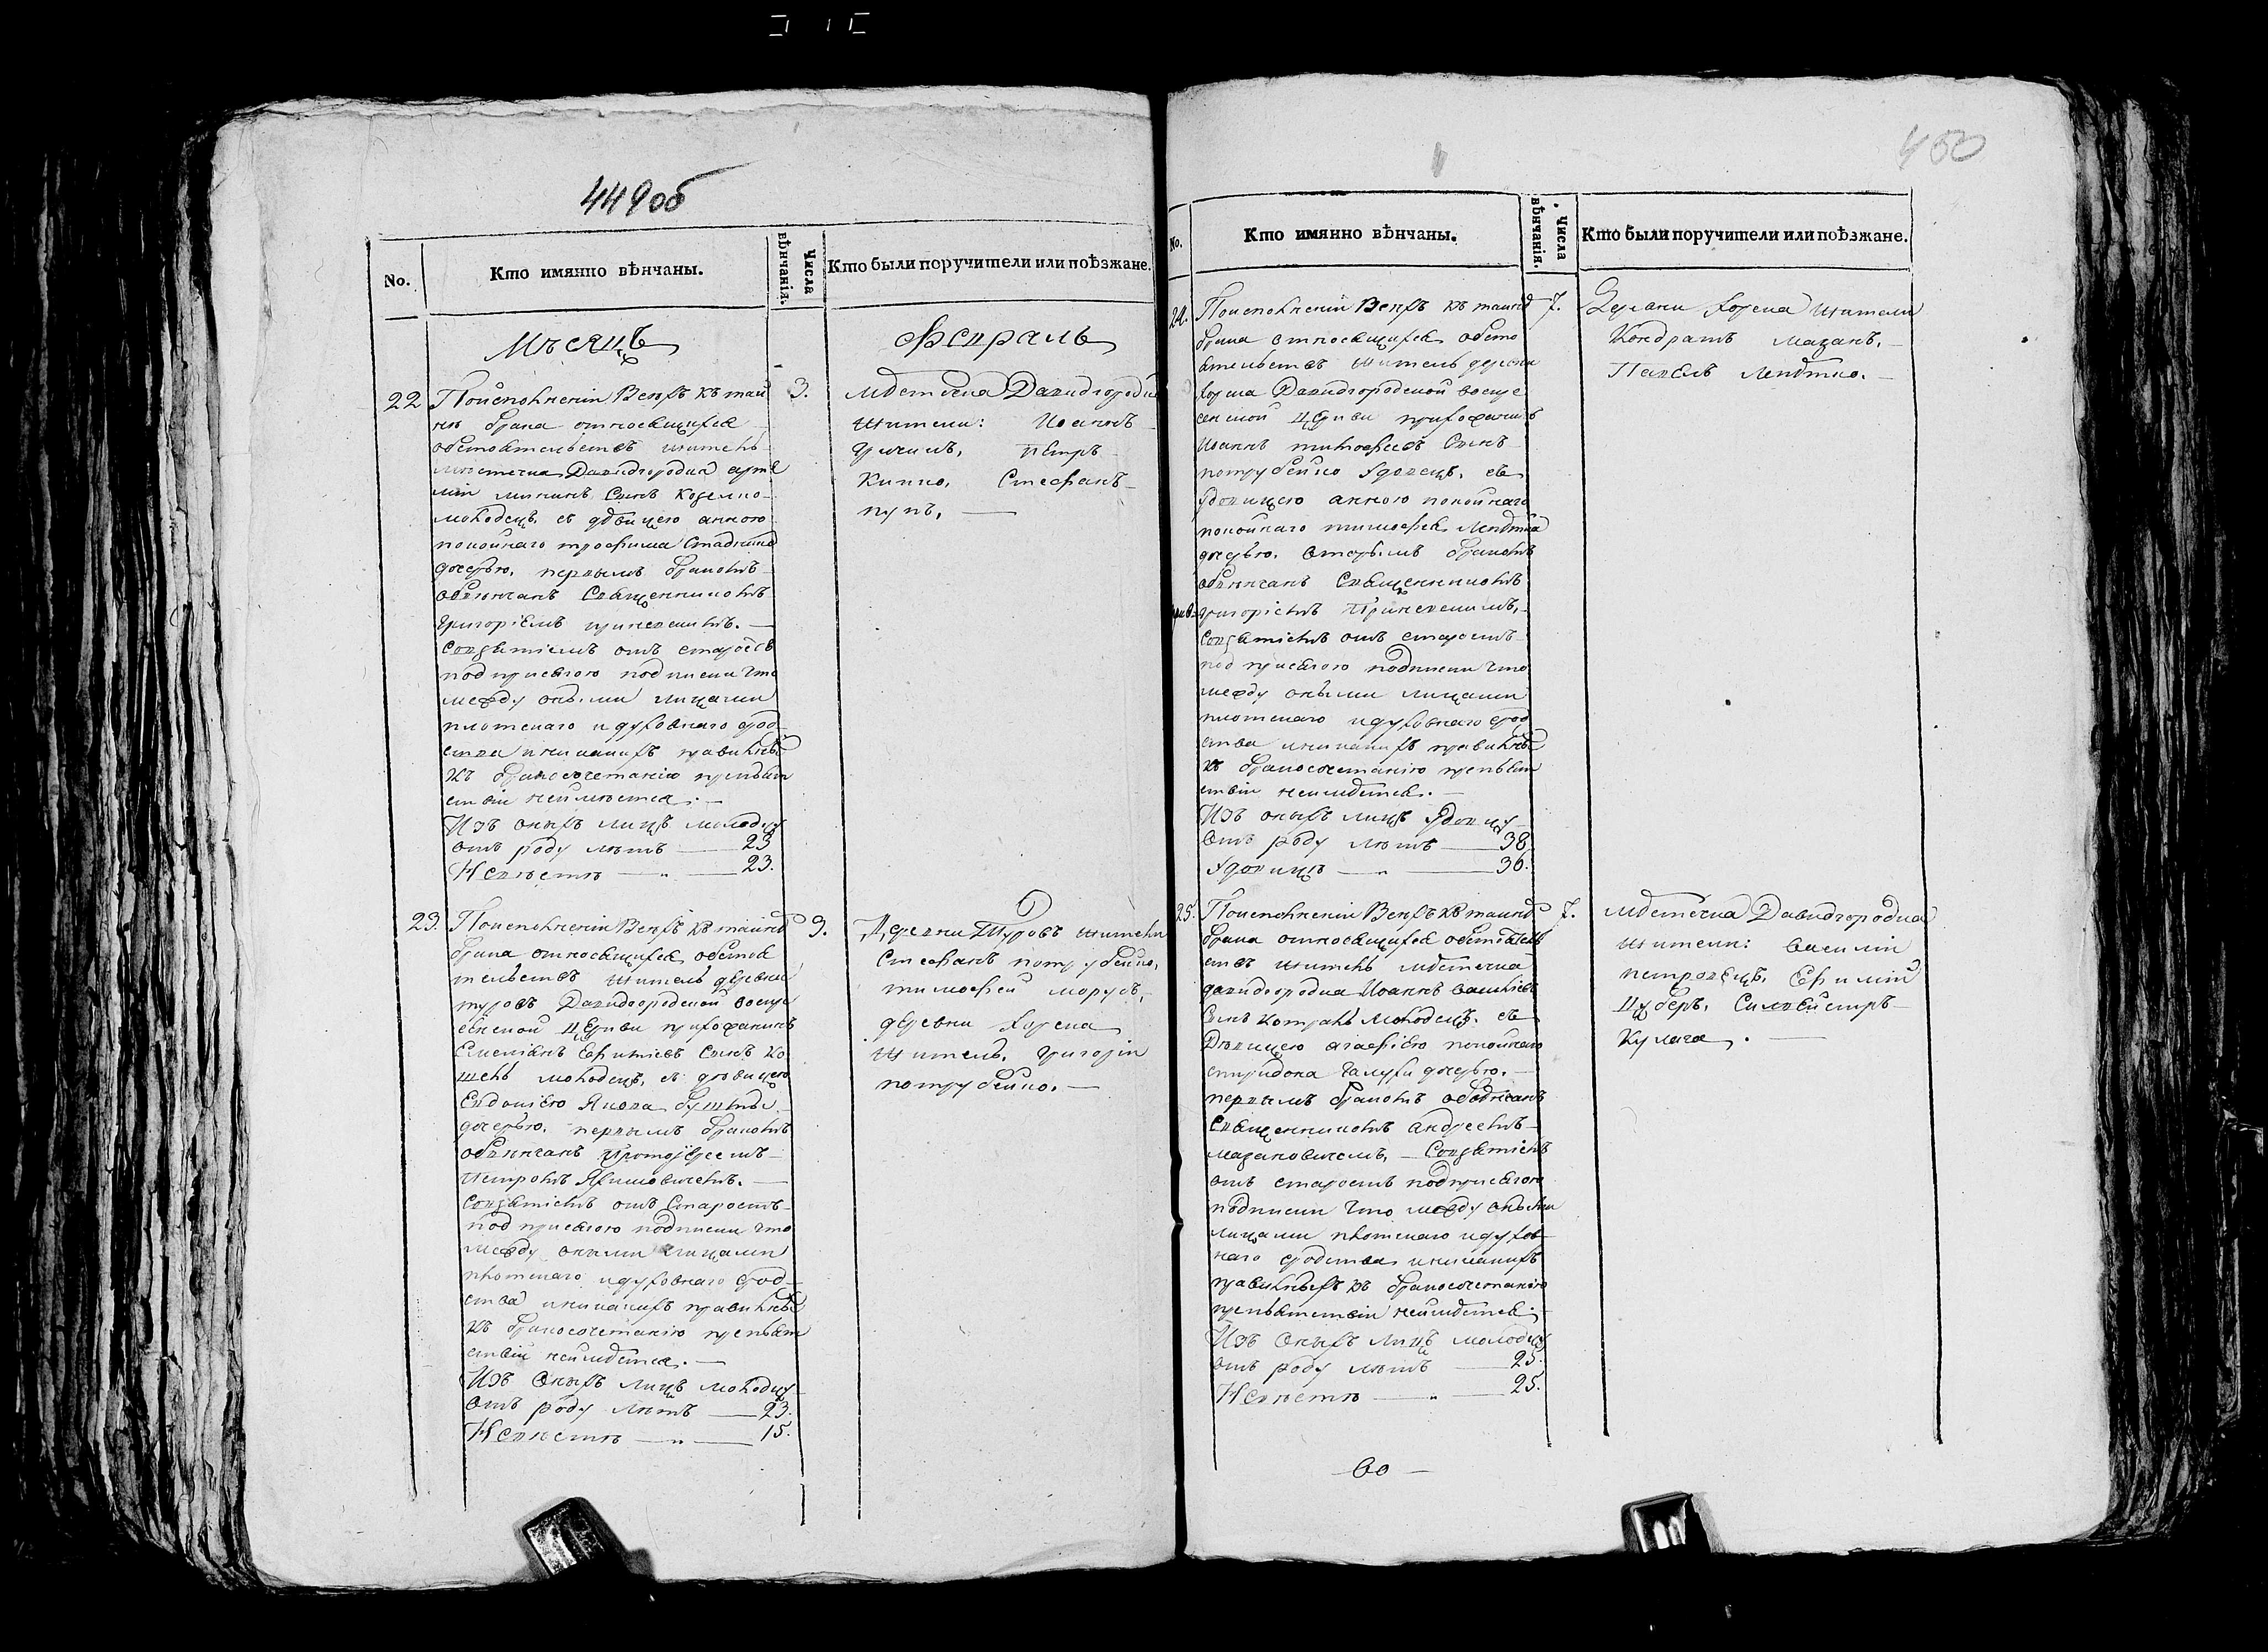 449об
No.
Кто имянно вѣнчаны.
Числа вѣнчанія.
Кто были поручители или поѣзжане.
Мѣсяцъ
Февраль
22
По исполненіи Всехъ къ таи
нѣ брака относящихся
обстоятельствъ житель
мѣстечка Давидгородка арте
мій
Сынъ
молодецъ, съ дѣвицею анною
покойнаго трофима
дочерью, первымъ бракомъ
обвѣнчанъ Священникомъ
григоріемъ
Сопзятіемъ отъ старостъ
под присягою подписки что
между оными лицами
плотскаго и духовнаго срод
ства и никакихъ правильны
къ бракосочетанію препят
ствій неимѣется. —
Изъ оныхъ лицъ молодцу
отъ роду лѣтъ — 23
Невѣстѣ — „ — 23.
3.
мѣстечка Давидгородка
жители: Иоаннъ
Петръ
Стефанъ
23.
По исполненіи Всехъ къ таинѣ
брака относящихся обстоя
тельствъ житель деревни
туровъ Давидгородской воскре
сенской Церкви прихожанинъ
Емеліанъ Ефиміевъ Сынъ Ко
шель молодецъ, съ дѣвицею
Евдокіею Якова
дочерью, первымъ бракомъ
обвѣнчанъ Протоіереемъ
Петромъ Якимовичемъ. —
Сопзятіемъ отъ Старостъ
под присягою подписки что
между оными лицами
плотскаго и духовнаго срод
ства и никакихъ правильны
къ бракосочетанію препят
ствій неимѣется. —
Изъ Оныхъ лицъ молодцу
отъ роду лѣтъ — 23.
Невѣстѣ — „ — 15.
3.
Деревни Туровъ жители
Стефанъ потрубейко,
тимофей морузъ,
деревни хорска
житель, григорій
потрубейко. —
450
No.
Кто имянно вѣнчаны.
Числа вѣнчанія.
Кто были поручители или поѣзжане.
24.
По исполненіи Всехъ къ таинѣ
брака относящихся обсто
ятельствъ житель деревни
хорска Давидгородской воскре
сенской Церкви прихожанинъ
Иоаннъ тимофеевъ Сынъ
потрубейко удовецъ, съ
удовицею анною покойнаго
покойнаго тимофея
дочерью, вторымъ бракомъ
обвѣнчанъ Священникомъ
григоріемъ
Сопзятіемъ отъ старостъ
под присягою подписки что
между оными лицами
плотскаго и духовнаго срод
ства и никакихъ правильны
къ бракосочетанію препят
ствій неимѣется. —
Изъ оныхъ лицъ удовцу
отъ роду лѣтъ — 38
удовицѣ — „ — 36.
7.
хорска жители
Кондратъ мазанъ,
Павелъ
25.
По исполненіи Всехъ къ таинѣ
брака относящихся обстоятель
ствъ житель мѣстечка
давидгородка Иоаннъ
Сынъ молодецъ, съ
Дѣвицею агафіею покойнаго
спиридона дочерью. —
первымъ бракомъ обвѣнчанъ
Священникомъ андреемъ
мазановичемъ, — Сопзятіемъ
отъ старостъ подприсягою
подписки что между оными
лицами плотскаго и духов
наго сродства и никакихъ
правильныхъ къ бракосочетанію
препятствій неимѣется. —
Изъ Оныхъ лицъ молодцу
отъ роду лѣтъ — 25.
Невѣстѣ — „ — 25.
7.
мѣстечка Давидгородка
жители: василій
петровецъ, Ефимій
Силвестръ
Кулага. —